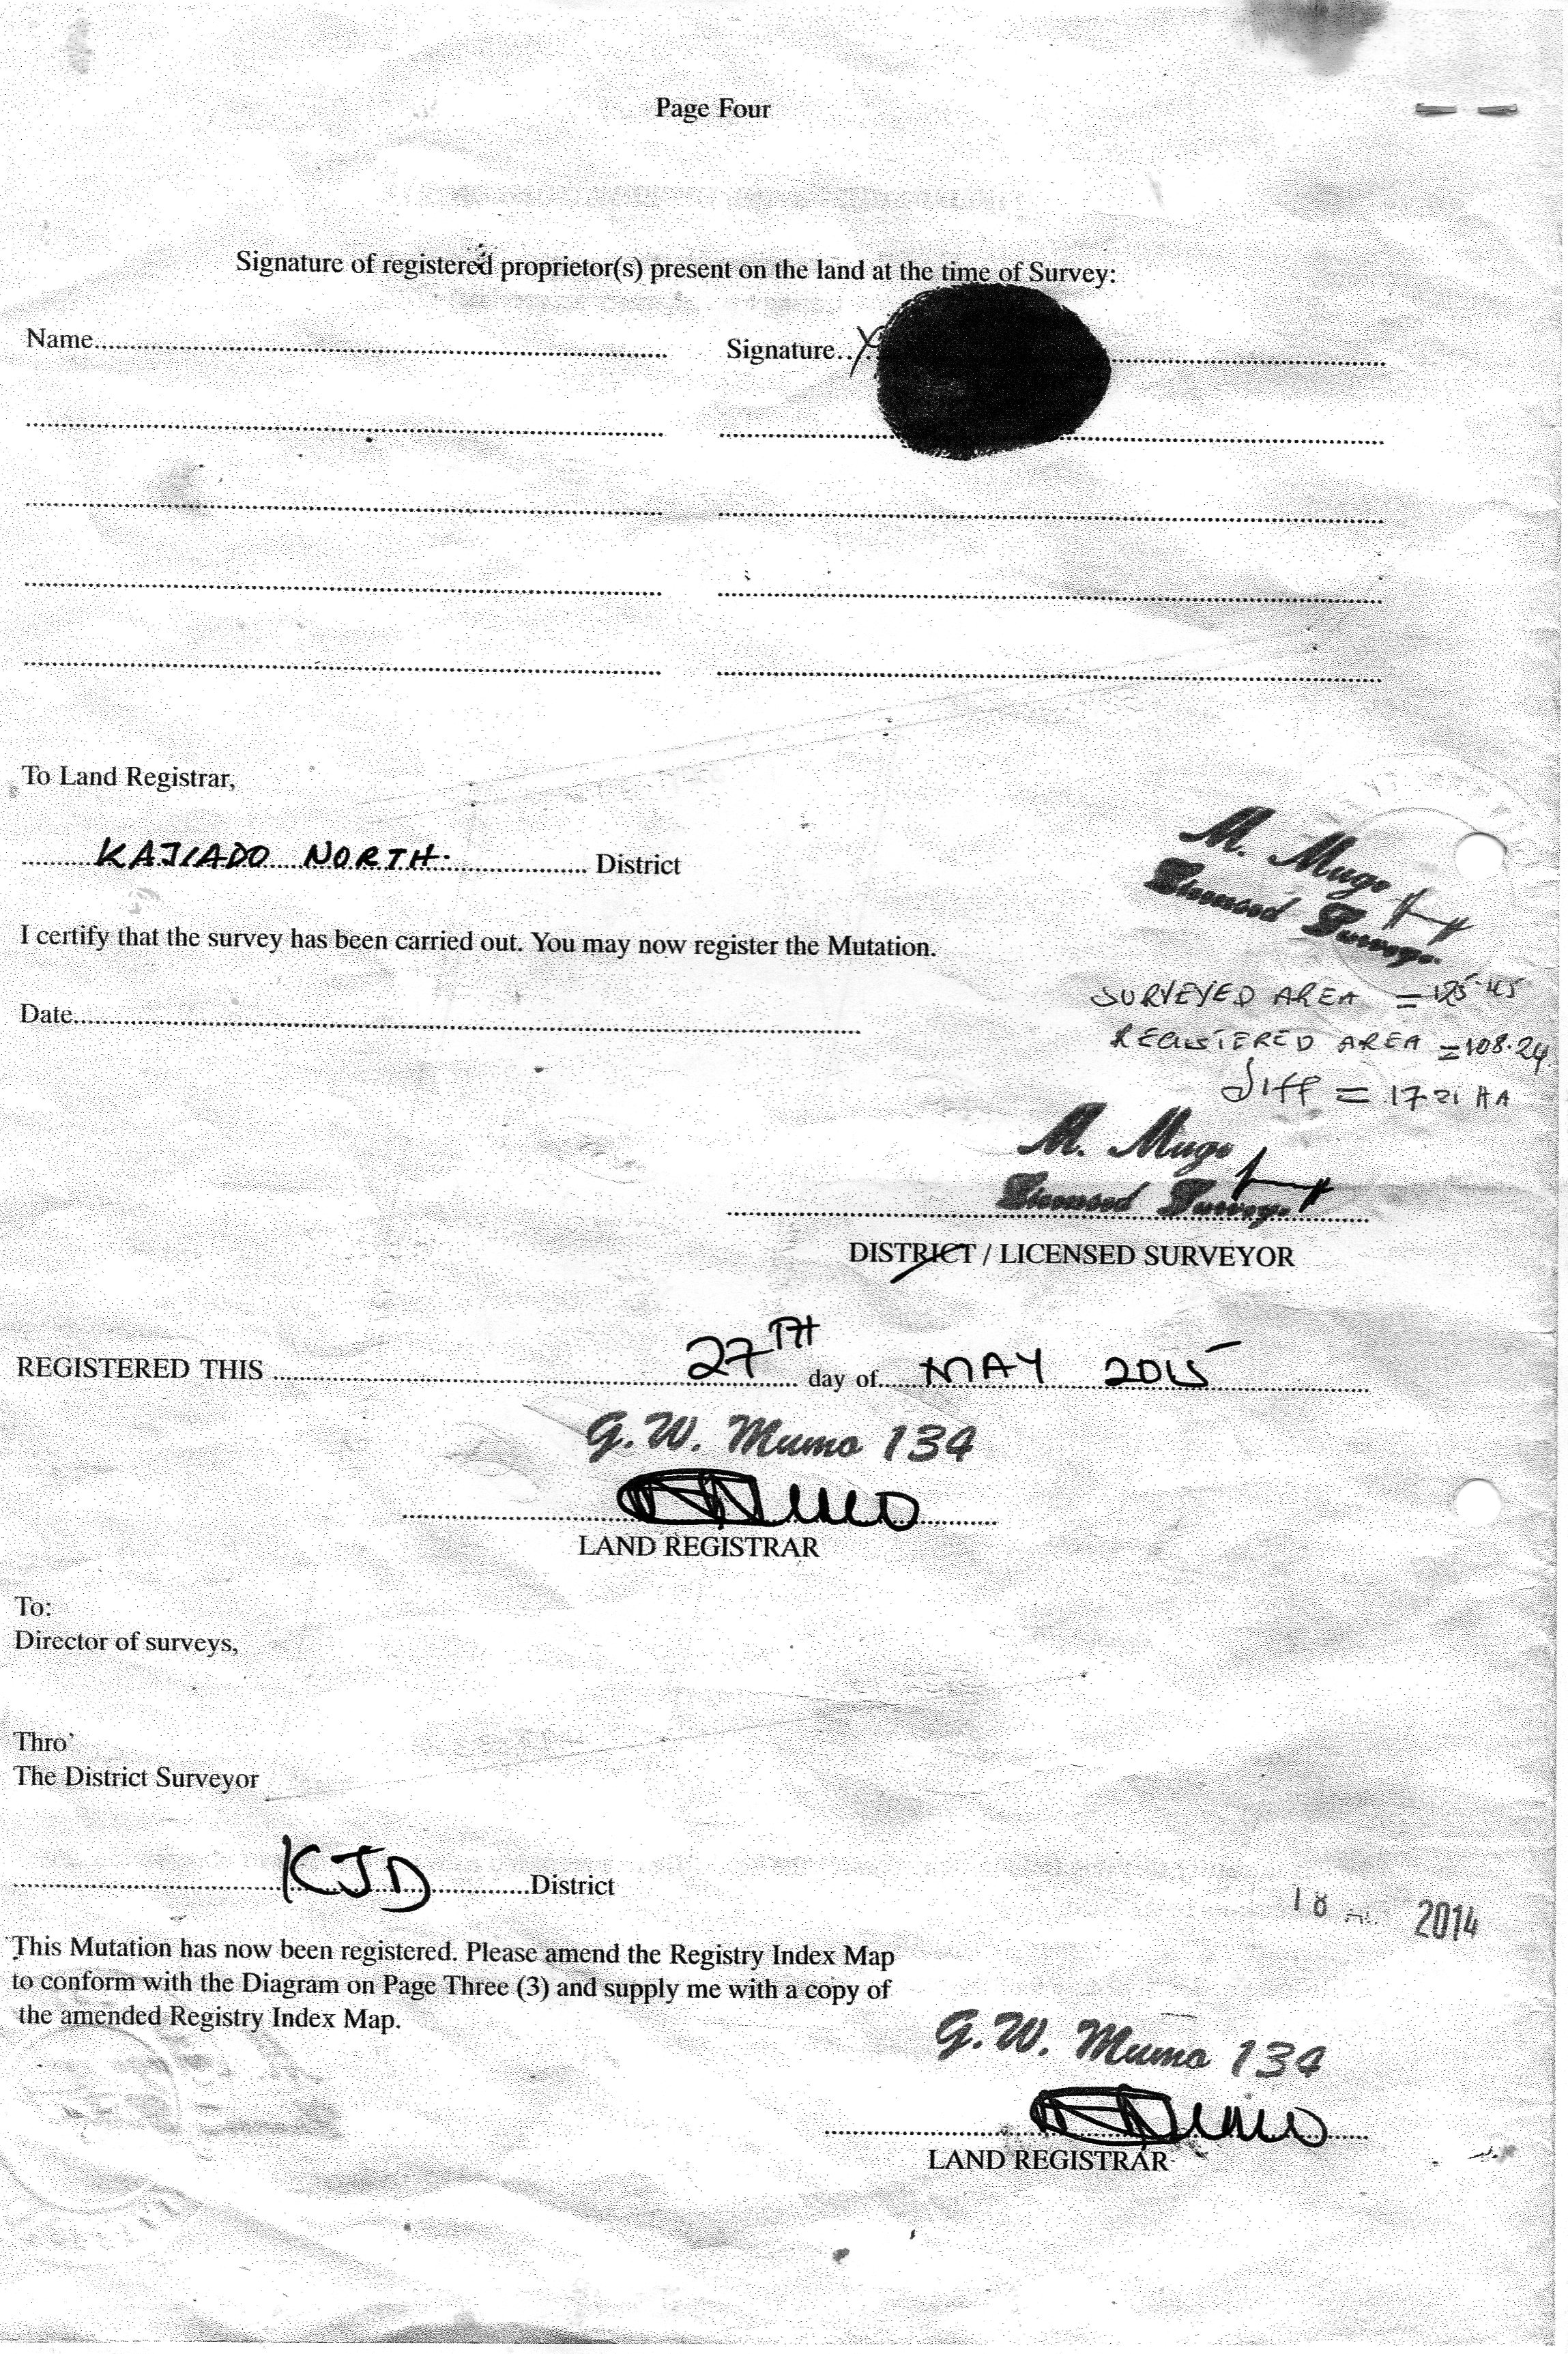 Page Four
Signature of registered proprietor(s) present on the land at the time of Survey:
Name.......... Signature.. X
To Land Registrar,
KAJIADO NORTH. District
M. Mugo
Licensed Surveyor
I certify that the survey has been carried out. You may now register the Mutation.
SURVEYED AREA = 125.45
Date..........
REGISTERED AREA = 108.24
Diff = 17.21 HA
M. Mugo
Licensed Surveyor
DISTRICT / LICENSED SURVEYOR
REGISTERED THIS 27TH day of MAY 2015
G.W. Mumo 134
LAND REGISTRAR
To:
Director of surveys,
Thro'
The District Surveyor
KJD District
18 2014
This Mutation has now been registered. Please amend the Registry Index Map
to conform with the Diagram on Page Three (3) and supply me with a copy of
the amended Registry Index Map.
G.W. Mumo 134
LAND REGISTRAR